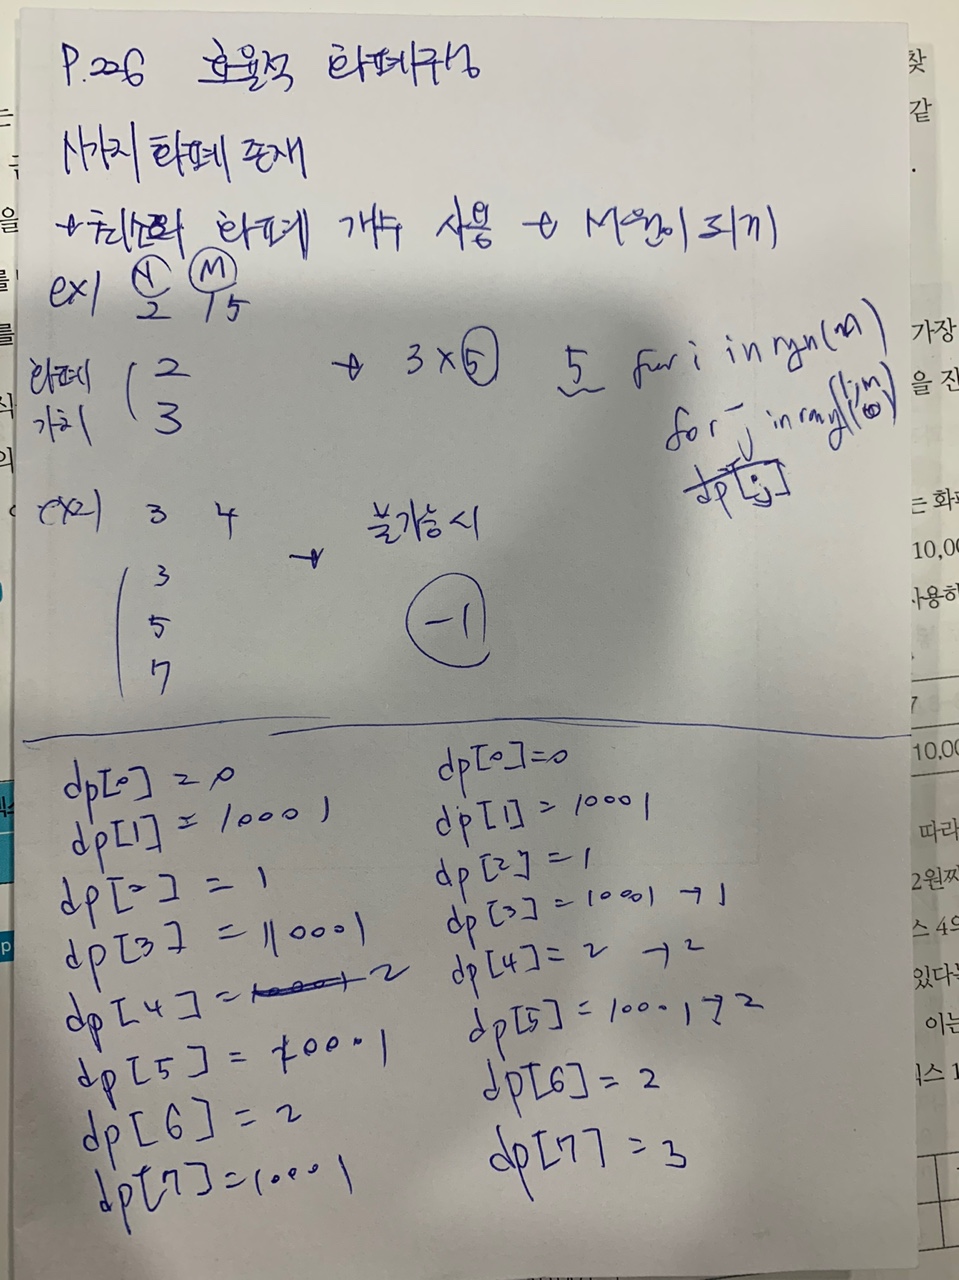 P.226 효율적 화폐구성
N가지 화폐 존재
→ 최소한의 화폐 개수 사용 → M원이 되기
ex1 N M
2 15
화폐 가치
2
3
→ 3×5
5
for i in
for j in
dp[j]
ex2 3 4
3
5
7
→ 불가능시
-1
dp[0] = 0
dp[1] = 10001
dp[2] = 1
dp[3] = 10001
dp[4] = 10001 2
dp[5] = 10001
dp[6] = 2
dp[7] = 10001
dp[0] = 0
dp[1] = 10001
dp[2] = 1
dp[3] = 10001 → 1
dp[4] = 2 → 2
dp[5] = 10001 → 2
dp[6] = 2
dp[7] = 3
찾
같
가장
을 진
는 화폐
10,00
사용하
7
10,00
따라
2원짜
스 4의
있다
이는
스 1